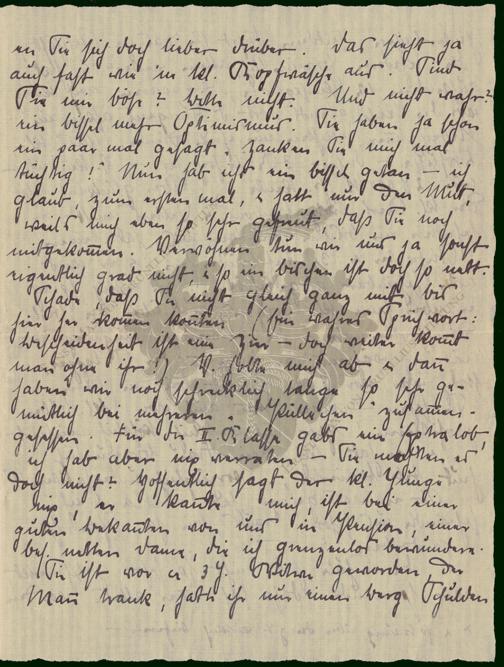 en Sie sich doch lieber drüber. Das sieht ja
auch fast wie 'ne kl. Kopfwäsche aus. Sind
Sie mir bös? Bitte nicht. Und nicht wahr?
ein bissel mehr Optimismus. Sie haben ja schon
ein paar mal gesagt „Zanken Sie mich mal
tüchtig!" Nun hab ichs ein bissel getan – ich
glaub, zum ersten mal, u. hatt nur den Mut,
weils mich eben so sehr gefreut, daß Sie noch
mitgekom̅en. Verwöhnen tun wir uns ja sonst
eigentlich grad nicht, u. so ein bischen ist doch so nett.
Schade, daß Sie nicht gleich ganz mit bis
hier her kom̅en kon̅ten (ein wahres Sprichwort:
Bescheidenheit ist eine Zier – doch weiter kom̅t
man ohne ihr!) V. holte mich ab u. dan̅
haben wir noch schrecklich lange so sehr ge-
mütlich bei mehreren zusam̅en-
gesessen. Für die II. Klasse gabs ein Extralob,
ich hab aber nix verraten – Sie
doch nicht? Hoffentlich sagt der kl. Junge
nix, er kan̅te mich, ist bei einer
guten Bekan̅ten von uns in Pension, einer
bes. netten Dame, die ich grenzenlos bewundere.
Sie ist vor ca 3 J. Witwe geworden, der
Man̅ trank, hatte ihr nur einen Berg Schulden